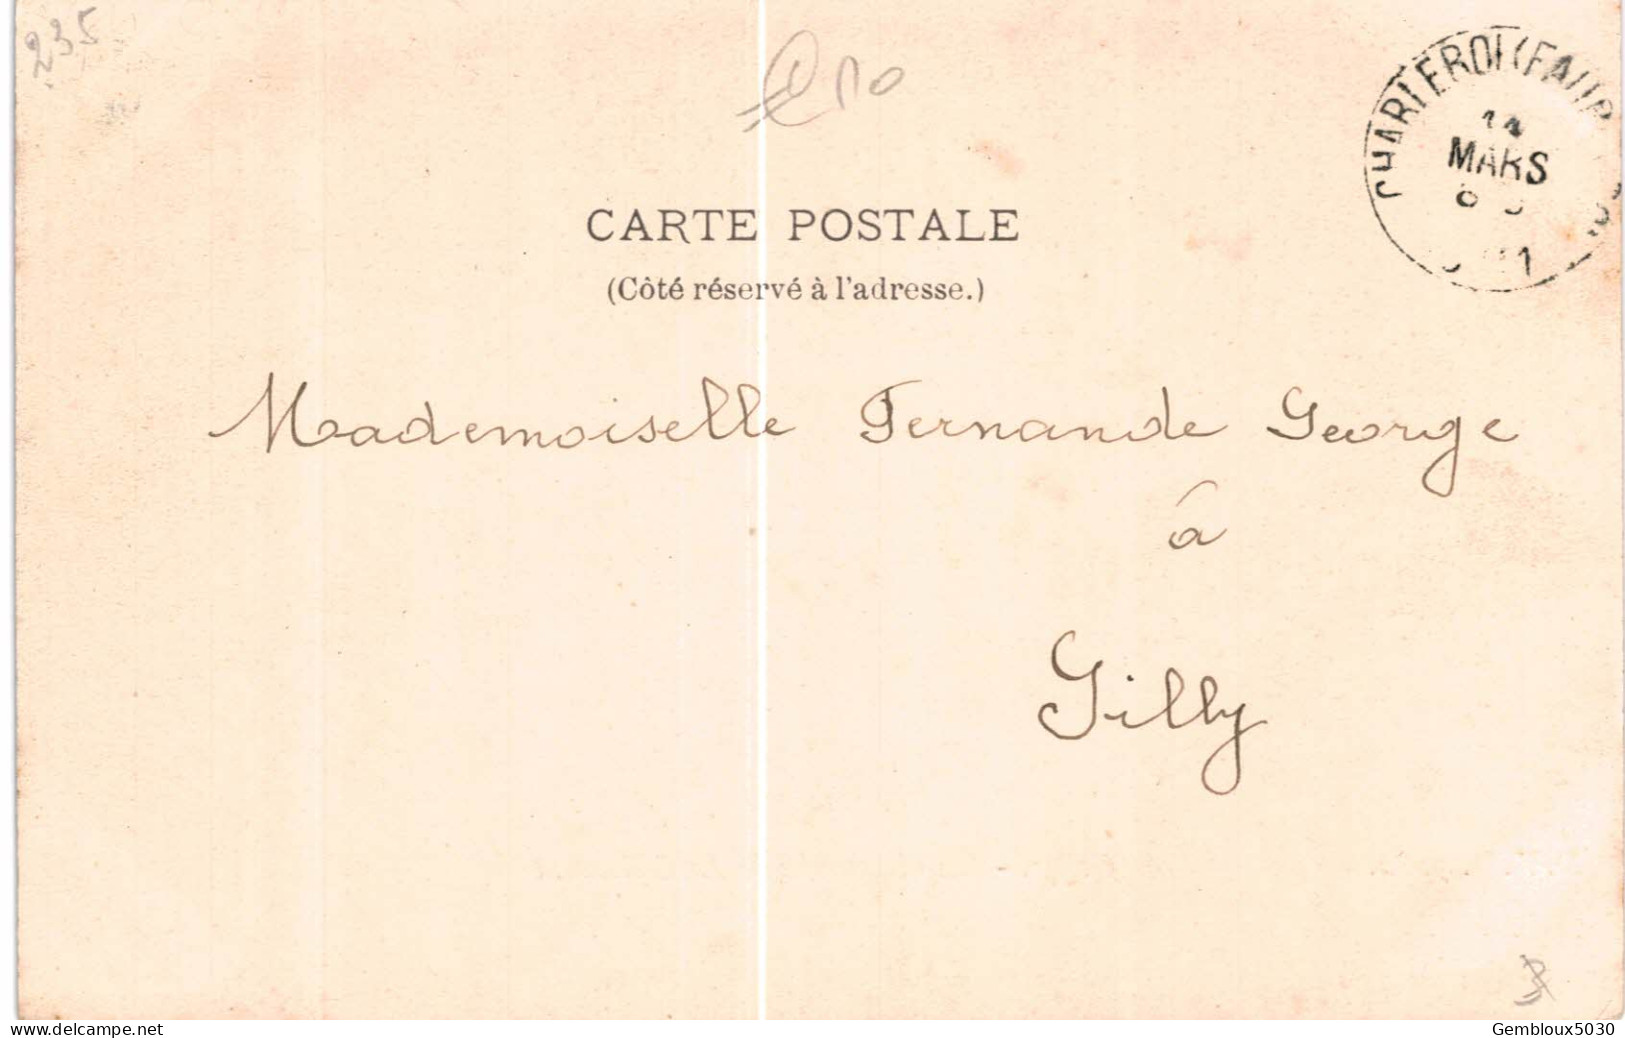 235
CHARLEROI (FAUB
14
MARS
CARTE POSTALE
(Côté réservé à l'adresse.)
Mademoiselle Fernande George
à
Gilly
www.delcampe.net
Gembloux5030